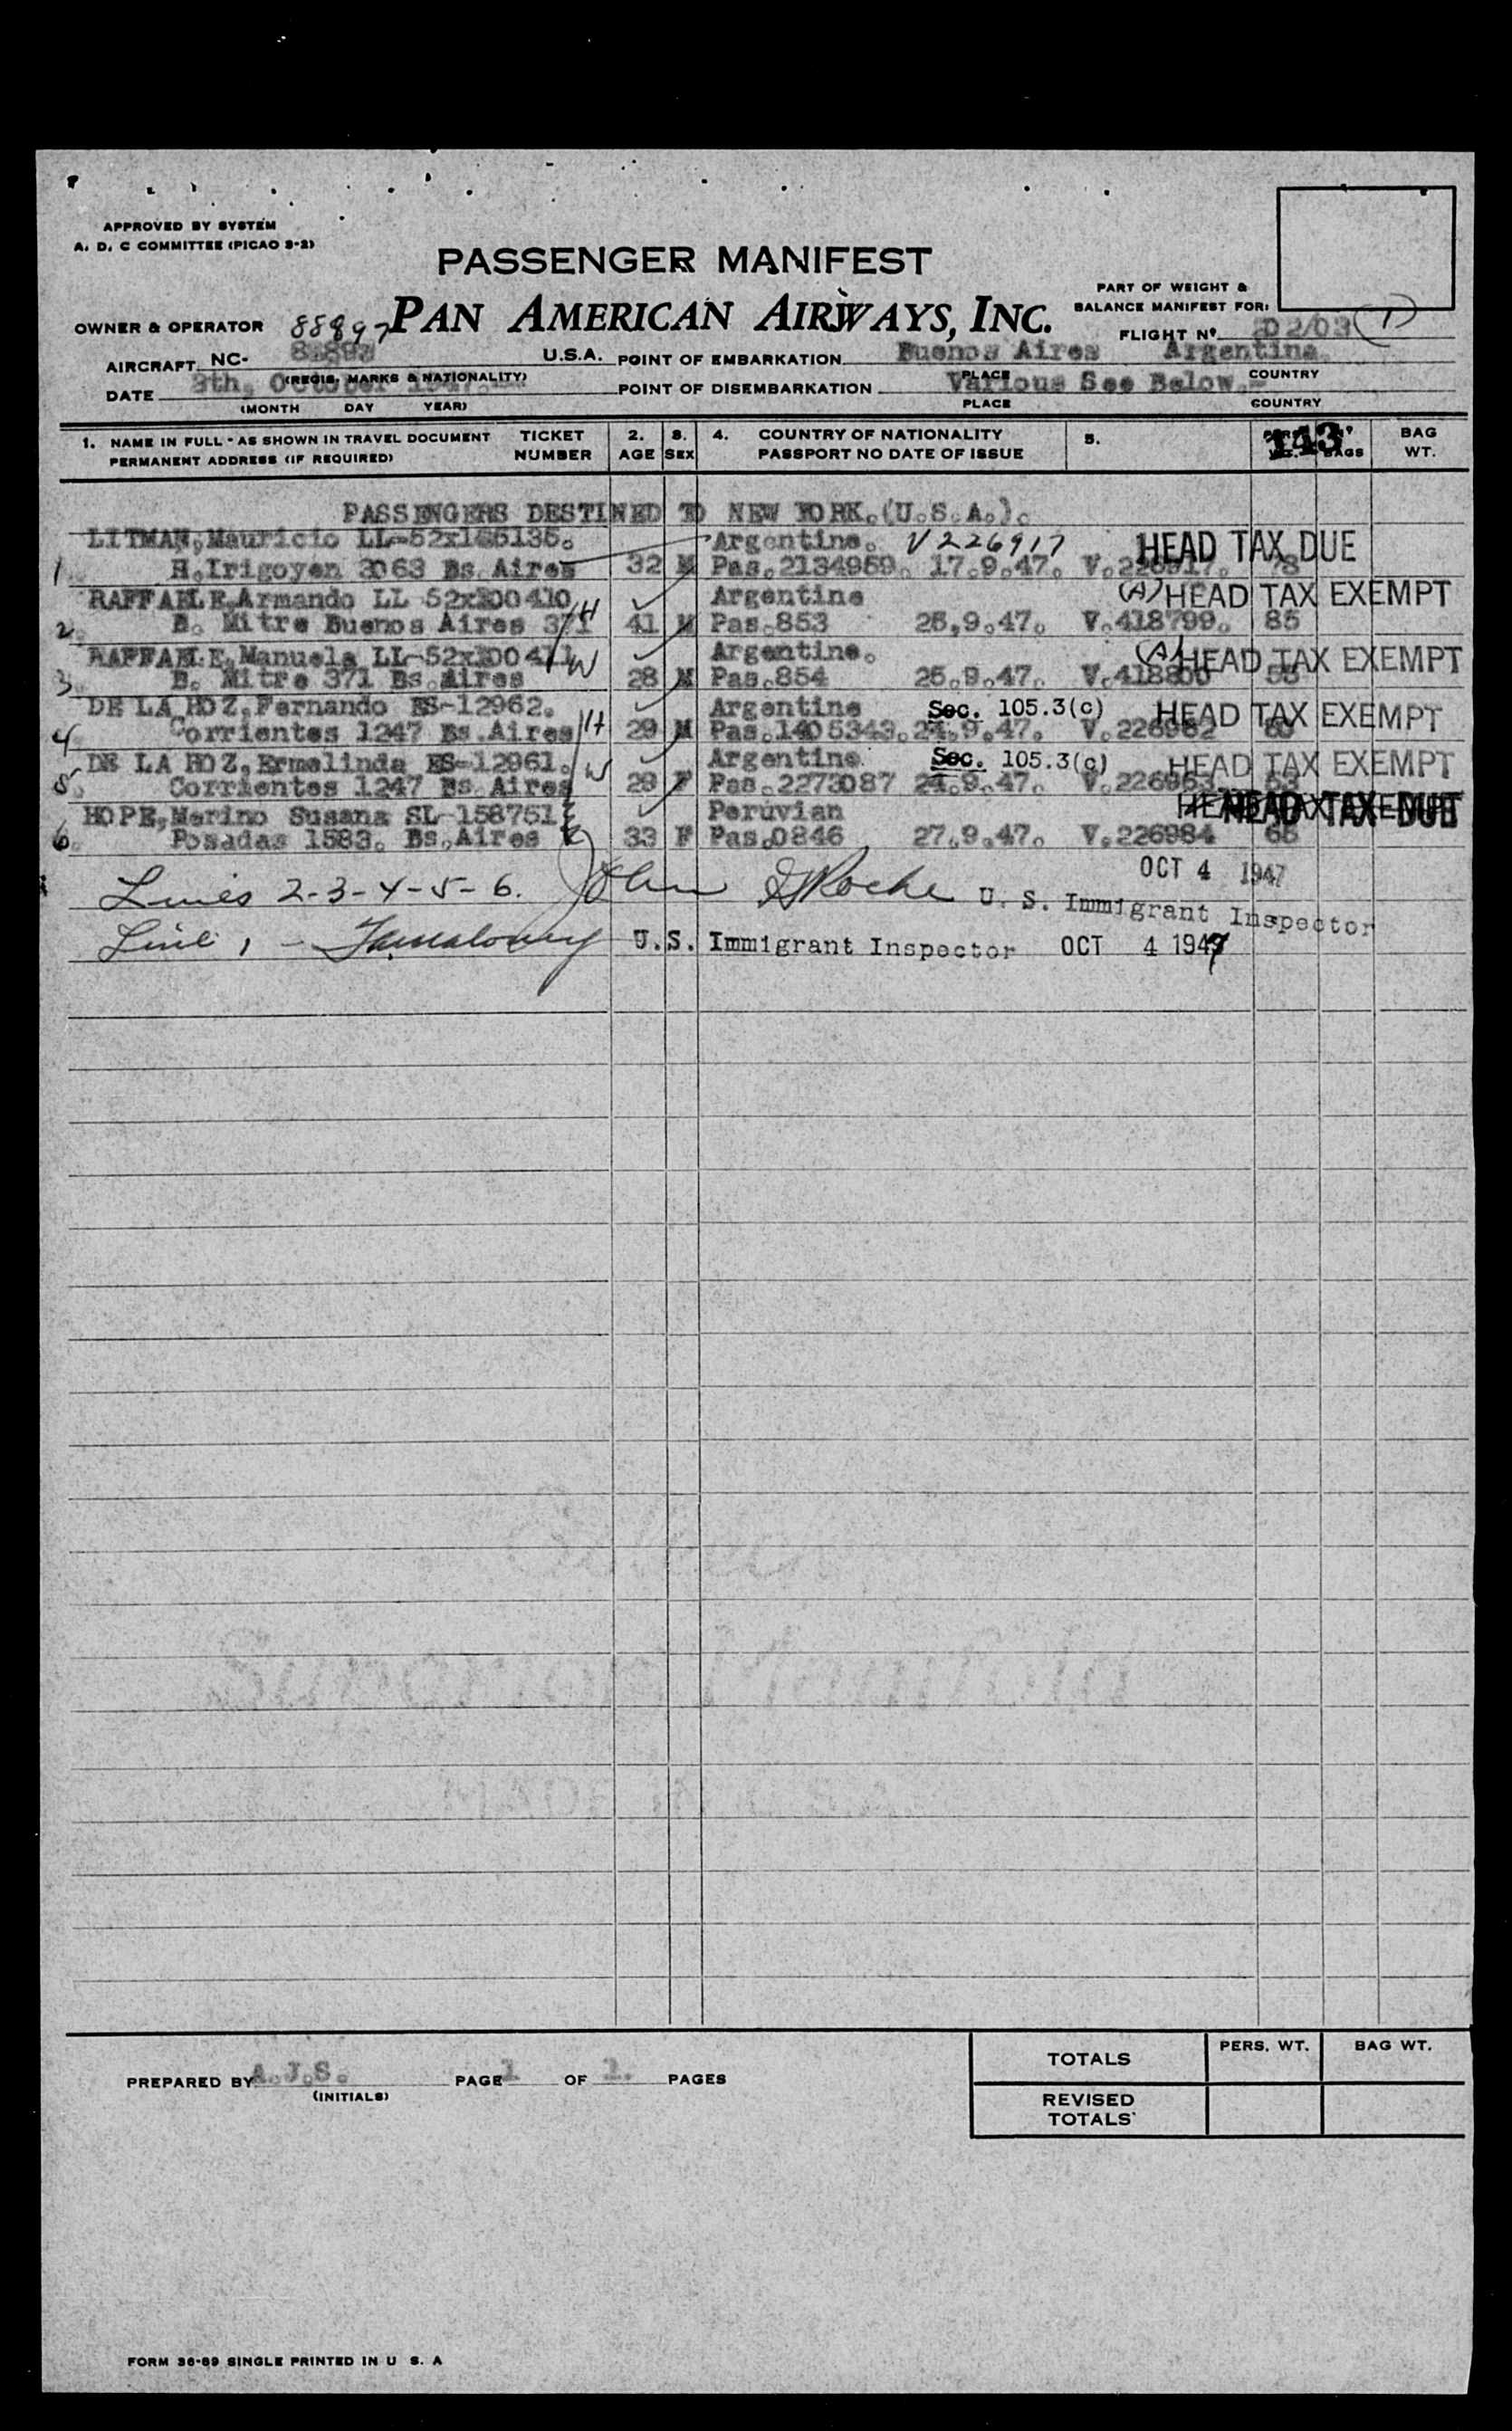 APPROVED BY SYSTEM
A. D. C COMMITTEE (PICAO 3-2)
PASSENGER MANIFEST
PART OF WEIGHT &
BALANCE MANIFEST FOR:
OWNER & OPERATOR 88897 PAN AMERICAN AIRWAYS, INC.
FLIGHT Nº 202/03 (1)
AIRCRAFT NC- U.S.A. POINT OF EMBARKATION Buenos Aires Argentina
(REGIS. MARKS & NATIONALITY) PLACE COUNTRY
DATE October POINT OF DISEMBARKATION Various See Below.-
(MONTH DAY YEAR) PLACE COUNTRY
1. NAME IN FULL - AS SHOWN IN TRAVEL DOCUMENT TICKET 2. 3. 4. COUNTRY OF NATIONALITY 5. 143 BAG
PERMANENT ADDRESS (IF REQUIRED) NUMBER AGE SEX PASSPORT NO DATE OF ISSUE BAGS WT.
PASSENGERS DESTINED TO NEW YORK.(U.S.A.).
LITMAN,Mauricio Argentine. V226917 HEAD TAX DUE
1. H.Irigoyen 3063 Bs.Aires 32 M Pas.2134959. 17.9.47. V.226917. 78
RAFFAELE,Armando LL 52x100410 Argentine (A) HEAD TAX EXEMPT
2. B. Mitre Buenos Aires 371 /H 41 M Pas.853 25.9.47. V.418799. 85
RAFFAELE,Manuela LL-52x100411 Argentine. (A) HEAD TAX EXEMPT
3. B. Mitre 371 Bs.Aires /W 28 M Pas.854 25.9.47. V.418800
DE LA HOZ,Fernando ES-12962. Argentine Sec. 105.3(c) HEAD TAX EXEMPT
4. Corrientes 1247 Bs.Aires /H 29 M Pas.1405343. 24.9.47. V.226962
DE LA HOZ,Ermelinda ES-12961. Argentine Sec. 105.3(c) HEAD TAX EXEMPT
5. Corrientes 1247 Bs.Aires /W 29 F Pas.2273087 24.9.47. V.226963. 53
HOPE,Merino Susana SL-158751 Peruvian HEAD TAX DUE
6. Posadas 1583. Bs.Aires 33 F Pas.0846 27.9.47. V.226984
OCT 4 1947
Lines 2-3-4-5-6. John Roche U. S. Immigrant Inspector
Line 1 - U.S. Immigrant Inspector OCT 4 1947
PREPARED BY A.J.S. PAGE 1 OF PAGES
(INITIALS)
TOTALS PERS. WT. BAG WT.
REVISED
TOTALS
FORM 36-89 SINGLE PRINTED IN U S. A